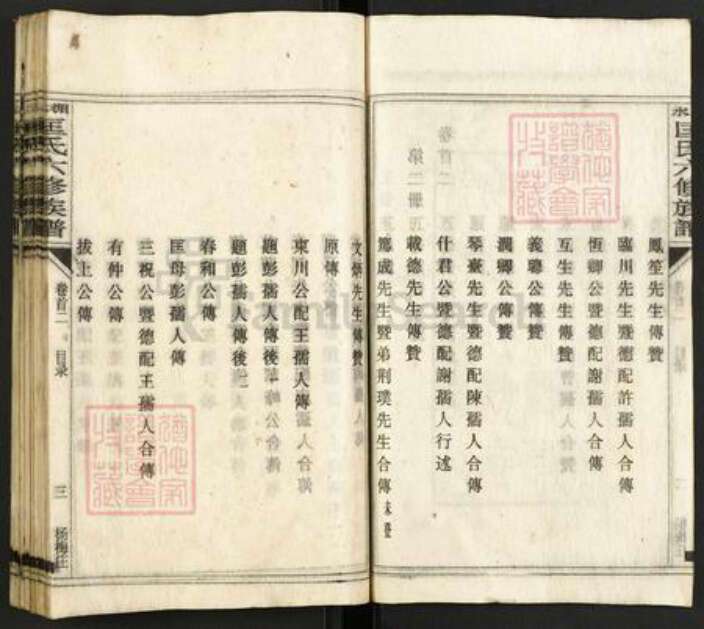 匡氏六修族譜
鳳笙先生傳贊
臨川先生暨德配許孺人合傳
恆卿公暨德配謝孺人合傳
互生先生傳贊
義聰公傳贊
潤卿公傳贊
琴臺先生暨德配陳孺人合傳
什君公暨德配謝孺人行述
載德先生傳贊
鄭成先生暨弟荆璞先生合傳 未登
文炳先生傳贊
原傳
東川公配王孺人傳
題彭孺人傳後一
題彭孺人傳後二
春和公傳
匡母彭孺人傳
三祝公暨德配王孺人合傳
有仲公傳
拔上公傳
匡氏六修族譜
卷首二
目录
三
杨梅庄
FamilySearch